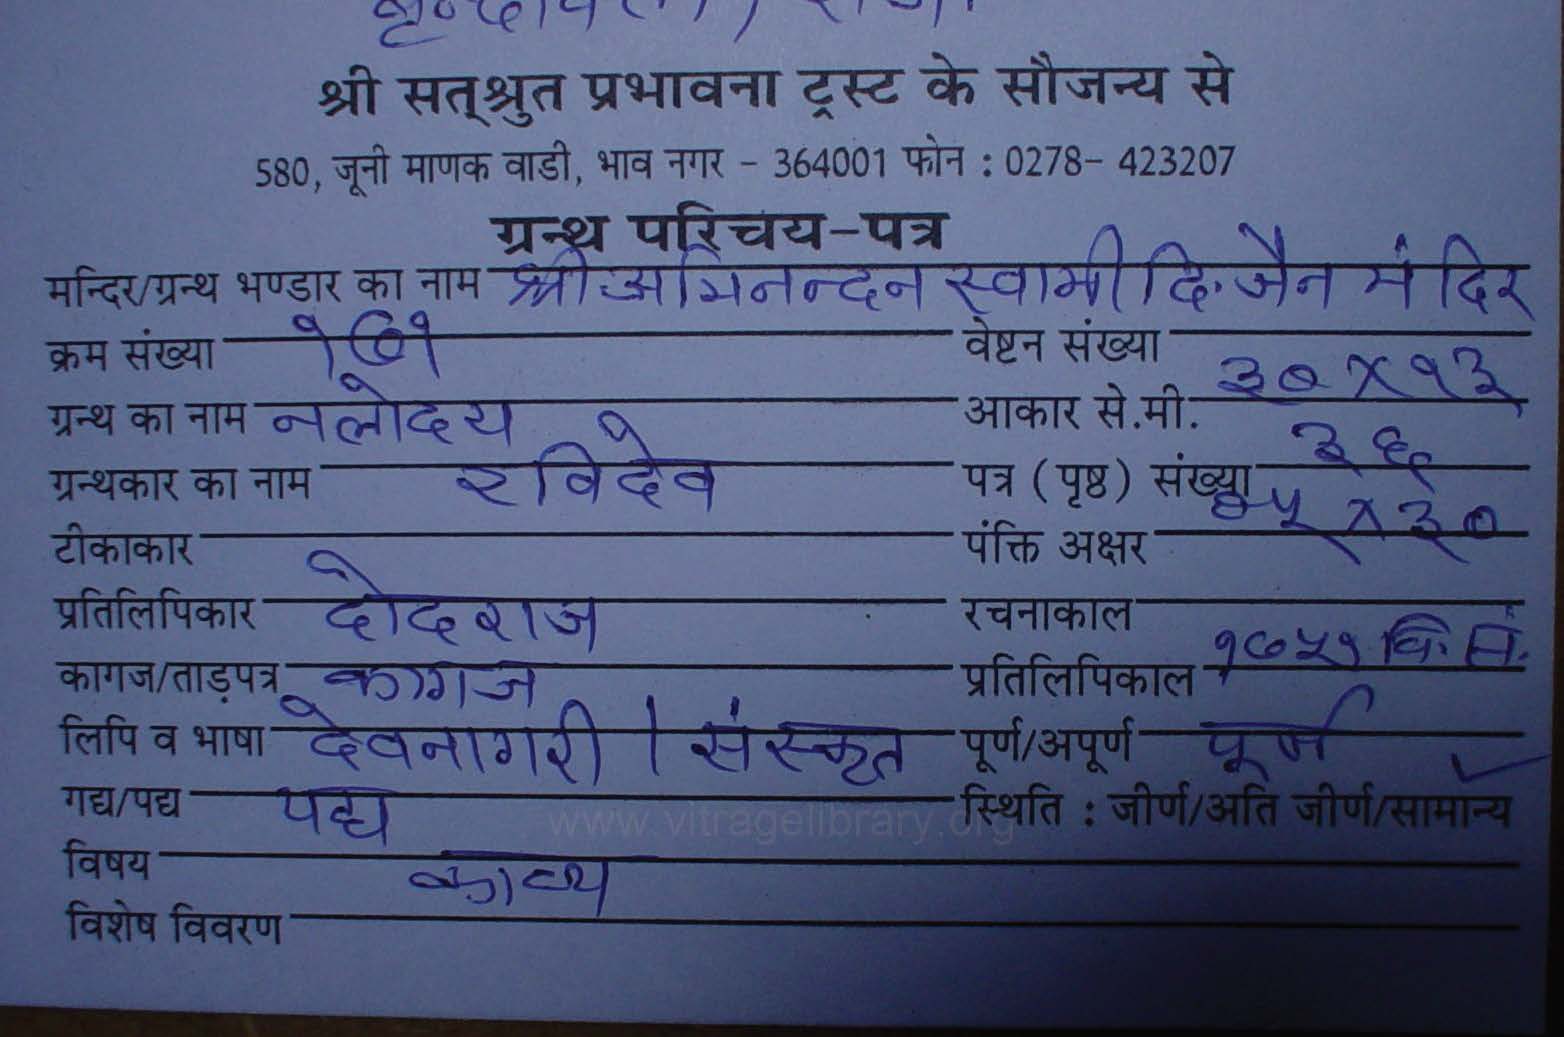 श्री सत्श्रुत प्रभावना ट्रस्ट के सौजन्य से
580, जूनी माणक वाडी, भाव नगर - 364001 फोन : 0278- 423207
ग्रन्थ परिचय-पत्र
मन्दिर/ग्रन्थ भण्डार का नाम श्री अभिनन्दन स्वामी दि. जैन मंदिर
क्रम संख्या १७१ वेष्टन संख्या
ग्रन्थ का नाम नलोदय आकार से.मी. ३० x १३
ग्रन्थकार का नाम रविदेव पत्र (पृष्ठ) संख्या ३६
टीकाकार पंक्ति अक्षर x ३०
प्रतिलिपिकार दोदराज रचनाकाल
कागज/ताड़पत्र कागज प्रतिलिपिकाल १७५१ वि. सं.
लिपि व भाषा देवनागरी / संस्कृत पूर्ण/अपूर्ण पूर्ण
गद्य/पद्य पद्य स्थिति : जीर्ण/अति जीर्ण/सामान्य ✓
www.vitragelibrary.org
विषय काव्य
विशेष विवरण